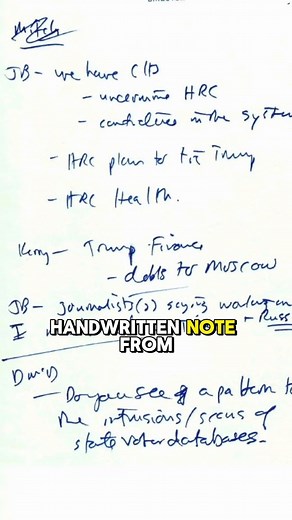 JB - we have CIA
- undermine HRC
- candidates in the system
- HRC plan to tie Trump
- HRC Health.
Kerry - Trump Finance
- debts to Moscow
JB - journalist(s) saying
I
+ Russ
HANDWRITTEN NOTE
FROM
David
- Do you see a pattern to
the intrusions/scans of
state voter databases.